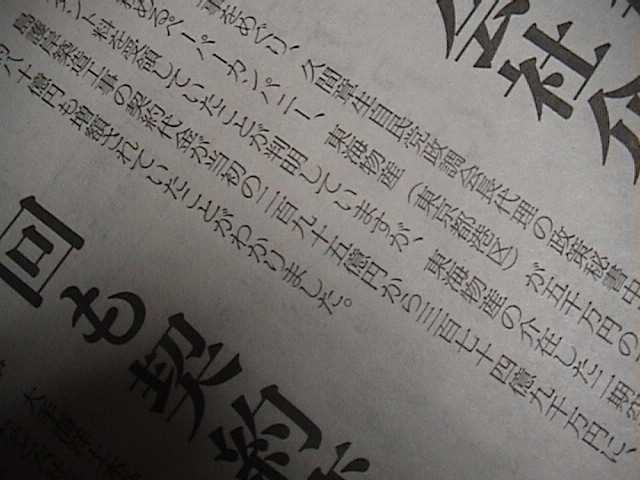 会社
事をめぐり、久間章生自民党政調会長代理の政策秘書
めるペーパーカンパニー、東海物産（東京都港区）が五千万円の
タント料を受領していたことが判明していますが、東海物産の介在した二期
島護岸築造工事の契約代金が当初の二百九十五億円から三百七十四億九千万円に、
八十億円も増額されていたことがわかりました。
回も契約